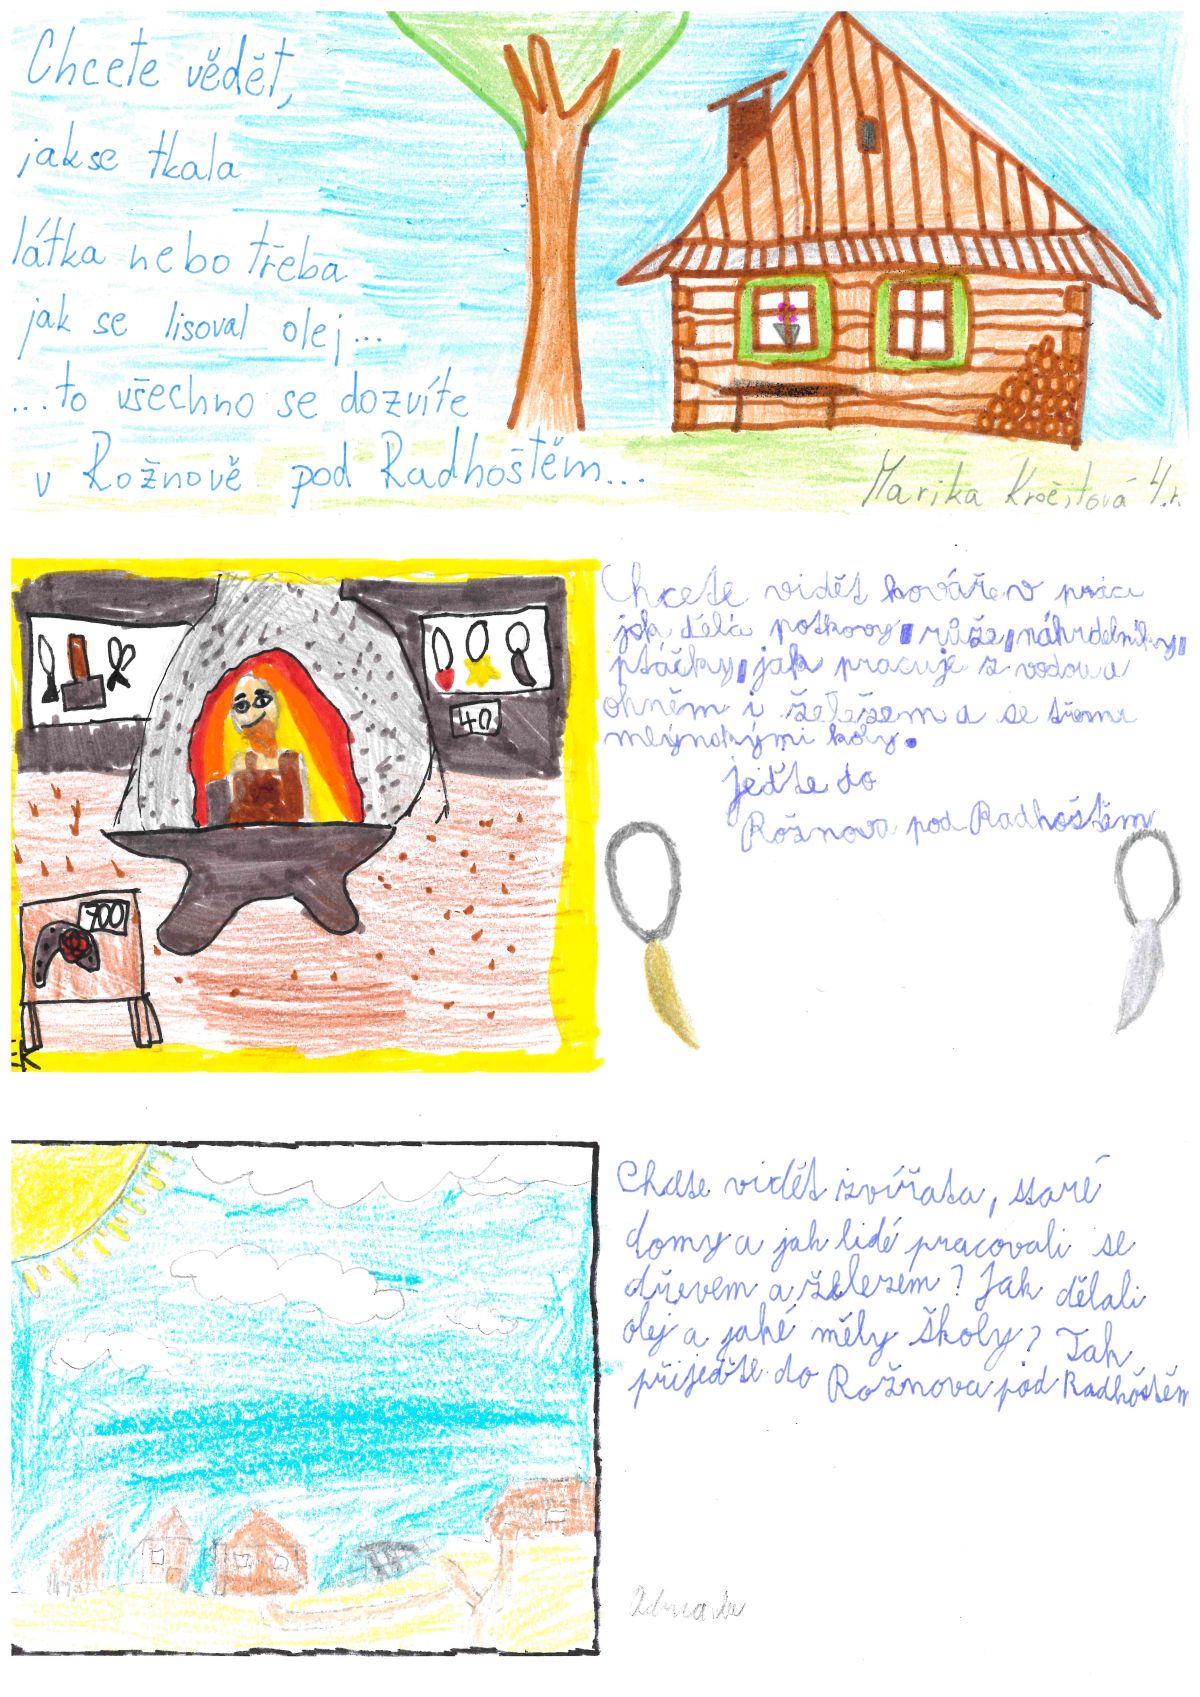 Chcete vědět,
jak se tkala
látka nebo třeba
jak se lisoval olej...
...to všechno se dozvíte
v Rožnově pod Radhoštěm...
Marika 4.r.
40
700
EK
Chcete vidět kováře v práci
jak dělá potkovy, růže, náhrdelníky,
ptáčky, jak pracuje z vodou a
ohněm i železem a se třemi
mlýnskými koly.
jeďte do
Rožnova pod Radhoštěm
Chcete vidět zvířata, staré
domy a jak lidé pracovali se
dřevem a železem? Jak dělali
olej a jaké měly školy? Tak
přijeďte do Rožnova pod Radhoštěm